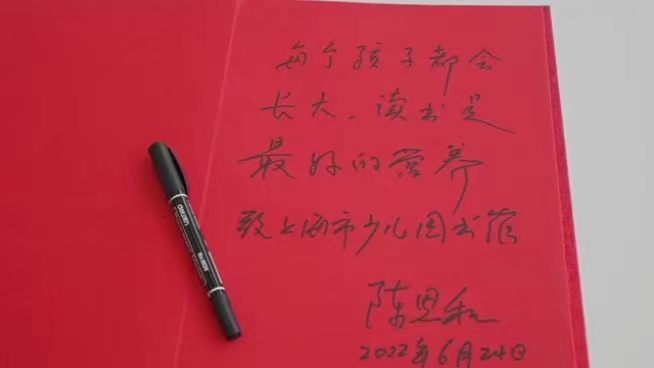 每个孩子都会
长大，读书是
最好的营养
致上海市少儿图书馆
陈思和
2022年6月24日